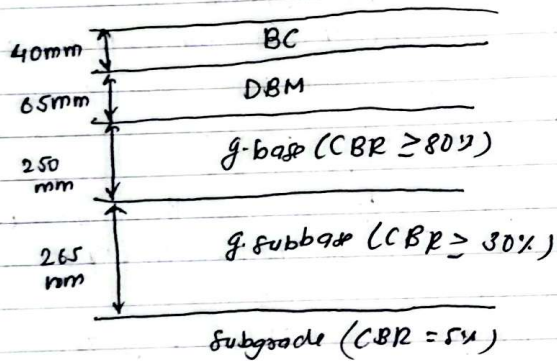 40mm
BC
65mm
DBM
250
mm
g.base (CBR ≥80%)
265
mm
g.subbase (CBR ≥ 30%)
Subgrade (CBR = 5%)